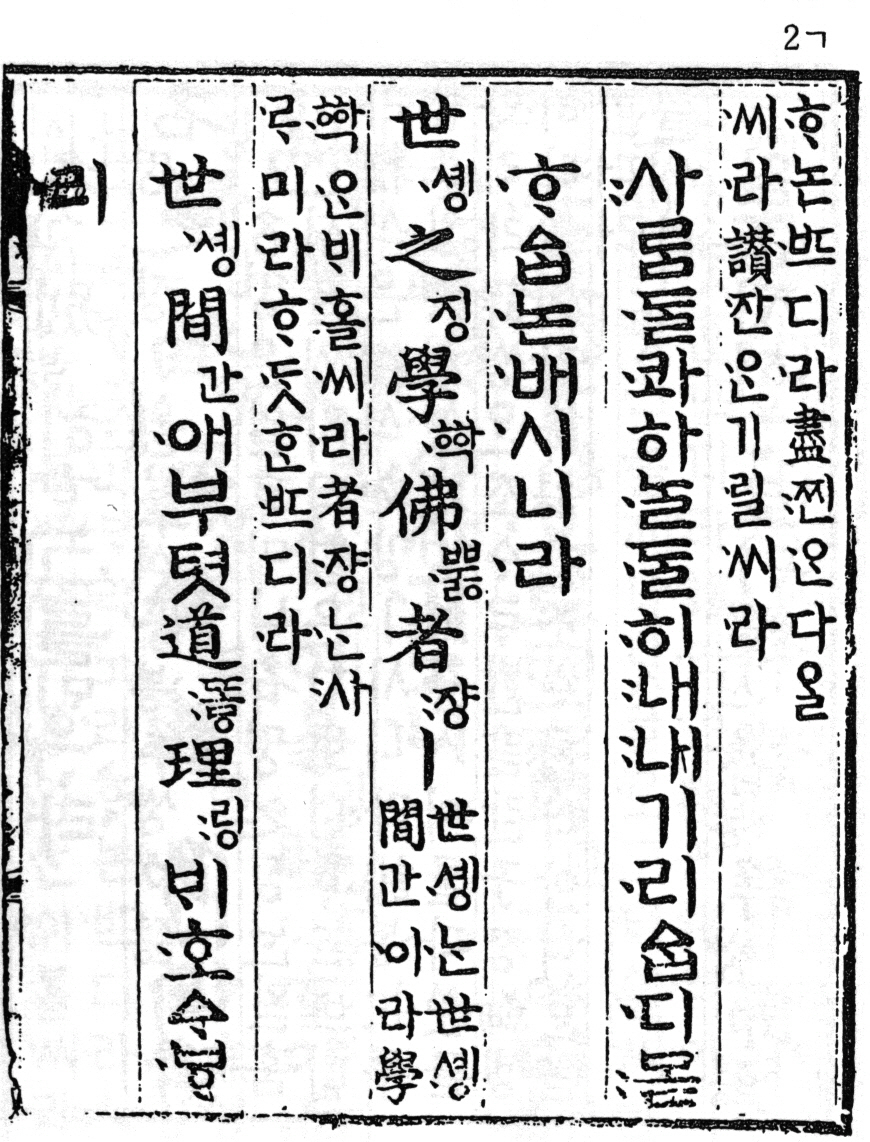 2ㄱ
ᄒᆞ논ᄠᅳ디라盡찐ᄋᆞᆫ다ᄋᆞᆯ
씨라讚잔ᄋᆞᆫ기릴씨라
사ᄅᆞᆷᄃᆞᆯ콰하ᄂᆞᆯᄃᆞᆯ히내내기리ᅀᆞᆸ디몯
ᄒᆞᅀᆞᆸ논배시니라
世솅之징學ᅘᅡᆨ佛뿌ᇙ者쟝ㅣ
世솅ᄂᆞᆫ世솅
間간이라學
ᅘᅡᆨᄋᆞᆫᄇᆡ홀씨라者쟝ᄂᆞᆫ사
ᄅᆞ미라ᄒᆞᄃᆞᆺᄒᆞᆫᄠᅳ디라
世솅間간애부텻道또ᇢ理링ᄇᆡ호ᅀᆞᄫᆞ
리